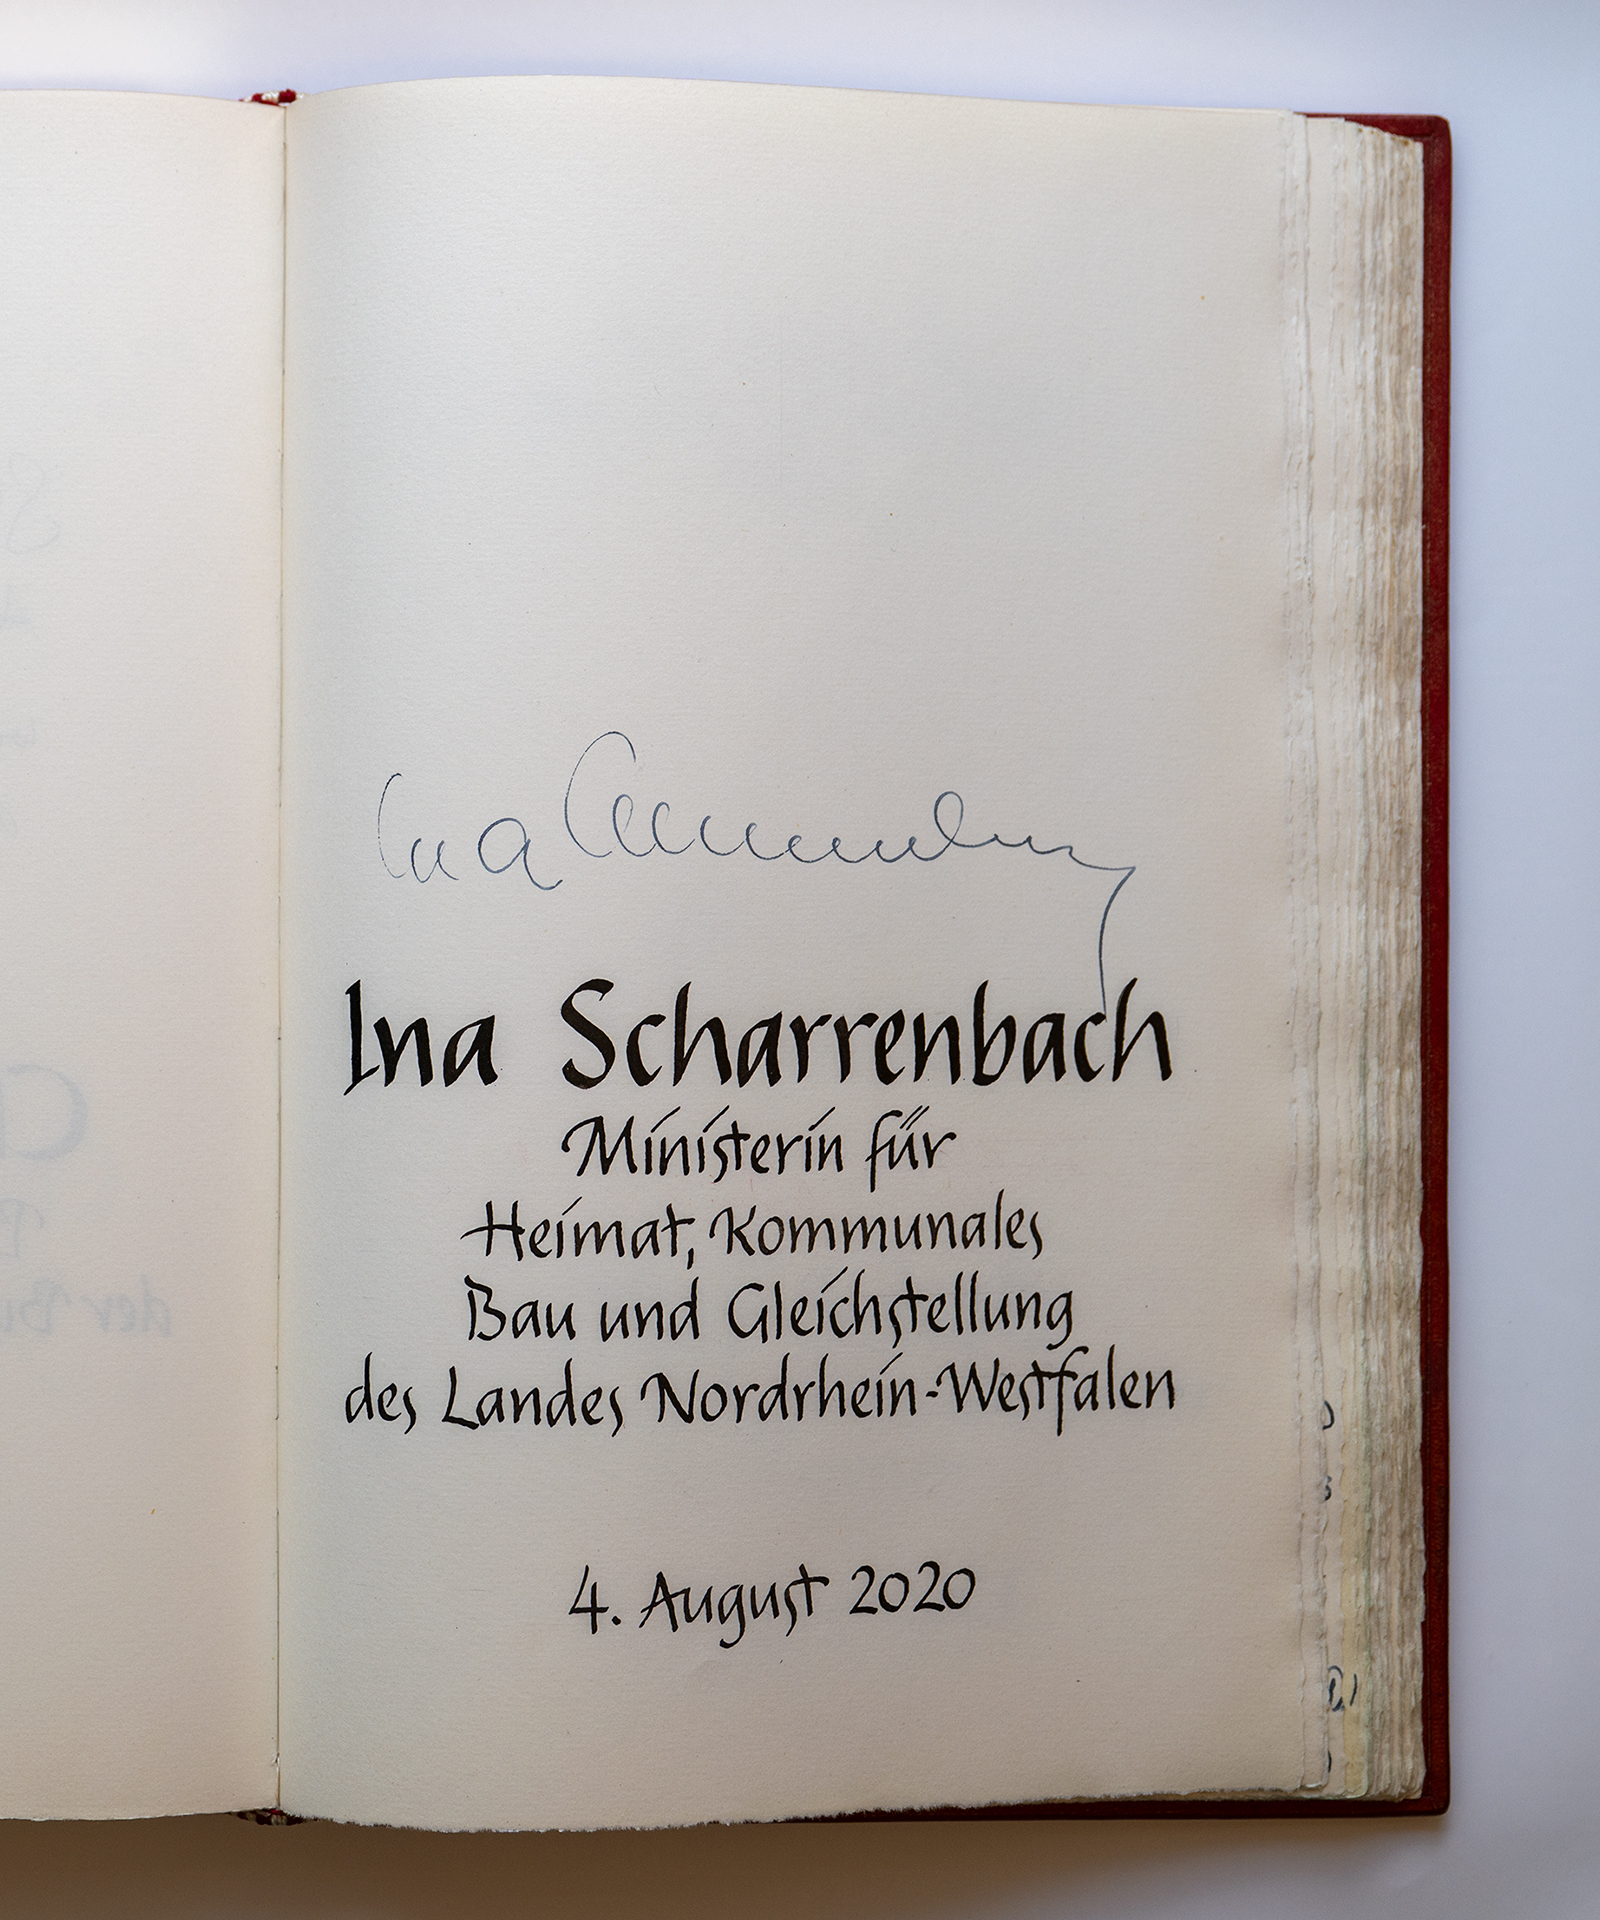 Ina Scharrenbach
Ina Scharrenbach
Ministerin für
Heimat, Kommunales
Bau und Gleichstellung
des Landes Nordrhein-Westfalen
4. August 2020